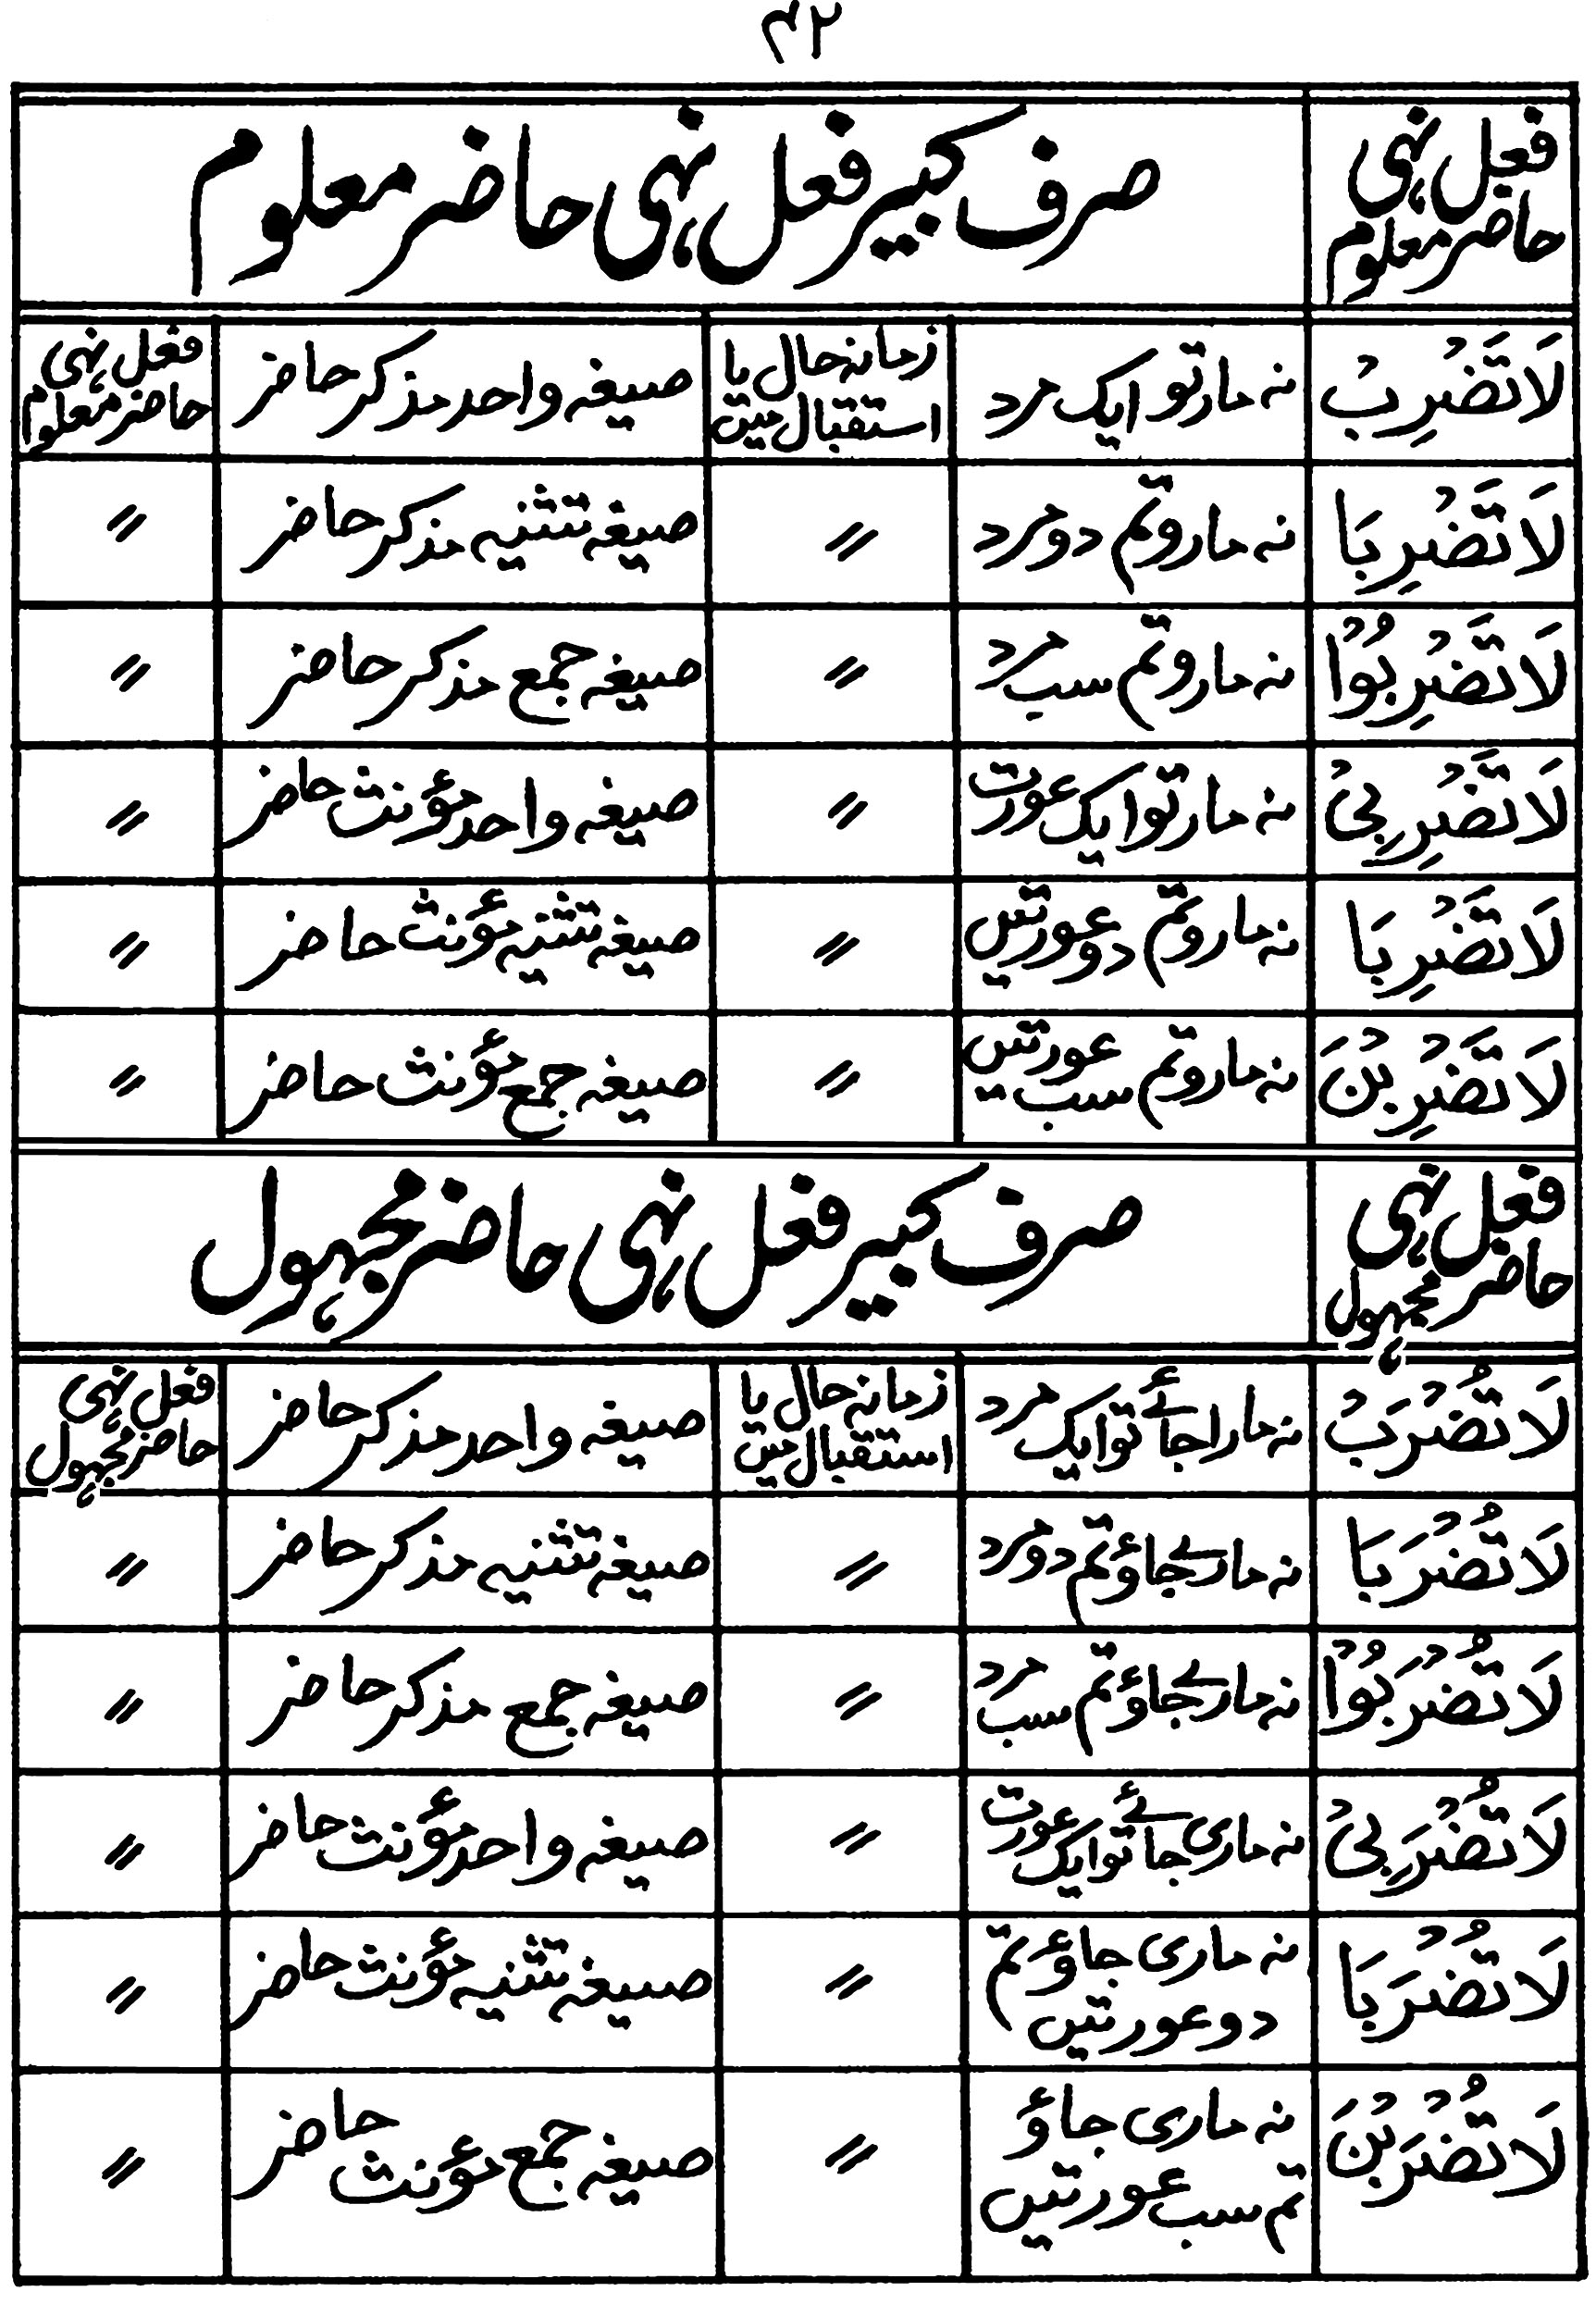 ۴۲
فعل نہی
حاضر معلوم
صرف کبیر فعل نہی حاضر معلوم
لَا تَضْرِبْ نہ مار تو ایک مرد زمانہ حال یا استقبال میں صیغہ واحد مذکر حاضر فعل نہی حاضر معلوم
لَا تَضْرِبَا نہ مارو تم دو مرد 〃 صیغہ تثنیہ مذکر حاضر 〃
لَا تَضْرِبُوْا نہ مارو تم سب مرد 〃 صیغہ جمع مذکر حاضر 〃
لَا تَضْرِبِیْ نہ مار تو ایک عورت 〃 صیغہ واحد مؤنث حاضر 〃
لَا تَضْرِبَا نہ مارو تم دو عورتیں 〃 صیغہ تثنیہ مؤنث حاضر 〃
لَا تَضْرِبْنَ نہ مارو تم سب عورتیں 〃 صیغہ جمع مؤنث حاضر 〃
فعل نہی
حاضر مجہول
صرف کبیر فعل نہی حاضر مجہول
لَا تُضْرَبْ نہ مارا جائے تو ایک مرد زمانہ حال یا استقبال میں صیغہ واحد مذکر حاضر فعل نہی حاضر مجہول
لَا تُضْرَبَا نہ مارے جاؤ تم دو مرد 〃 صیغہ تثنیہ مذکر حاضر 〃
لَا تُضْرَبُوْا نہ مارے جاؤ تم سب مرد 〃 صیغہ جمع مذکر حاضر 〃
لَا تُضْرَبِیْ نہ ماری جائے تو ایک عورت 〃 صیغہ واحد مؤنث حاضر 〃
لَا تُضْرَبَا نہ ماری جاؤ تم دو عورتیں 〃 صیغہ تثنیہ مؤنث حاضر 〃
لَا تُضْرَبْنَ نہ ماری جاؤ تم سب عورتیں 〃 صیغہ جمع مؤنث حاضر 〃